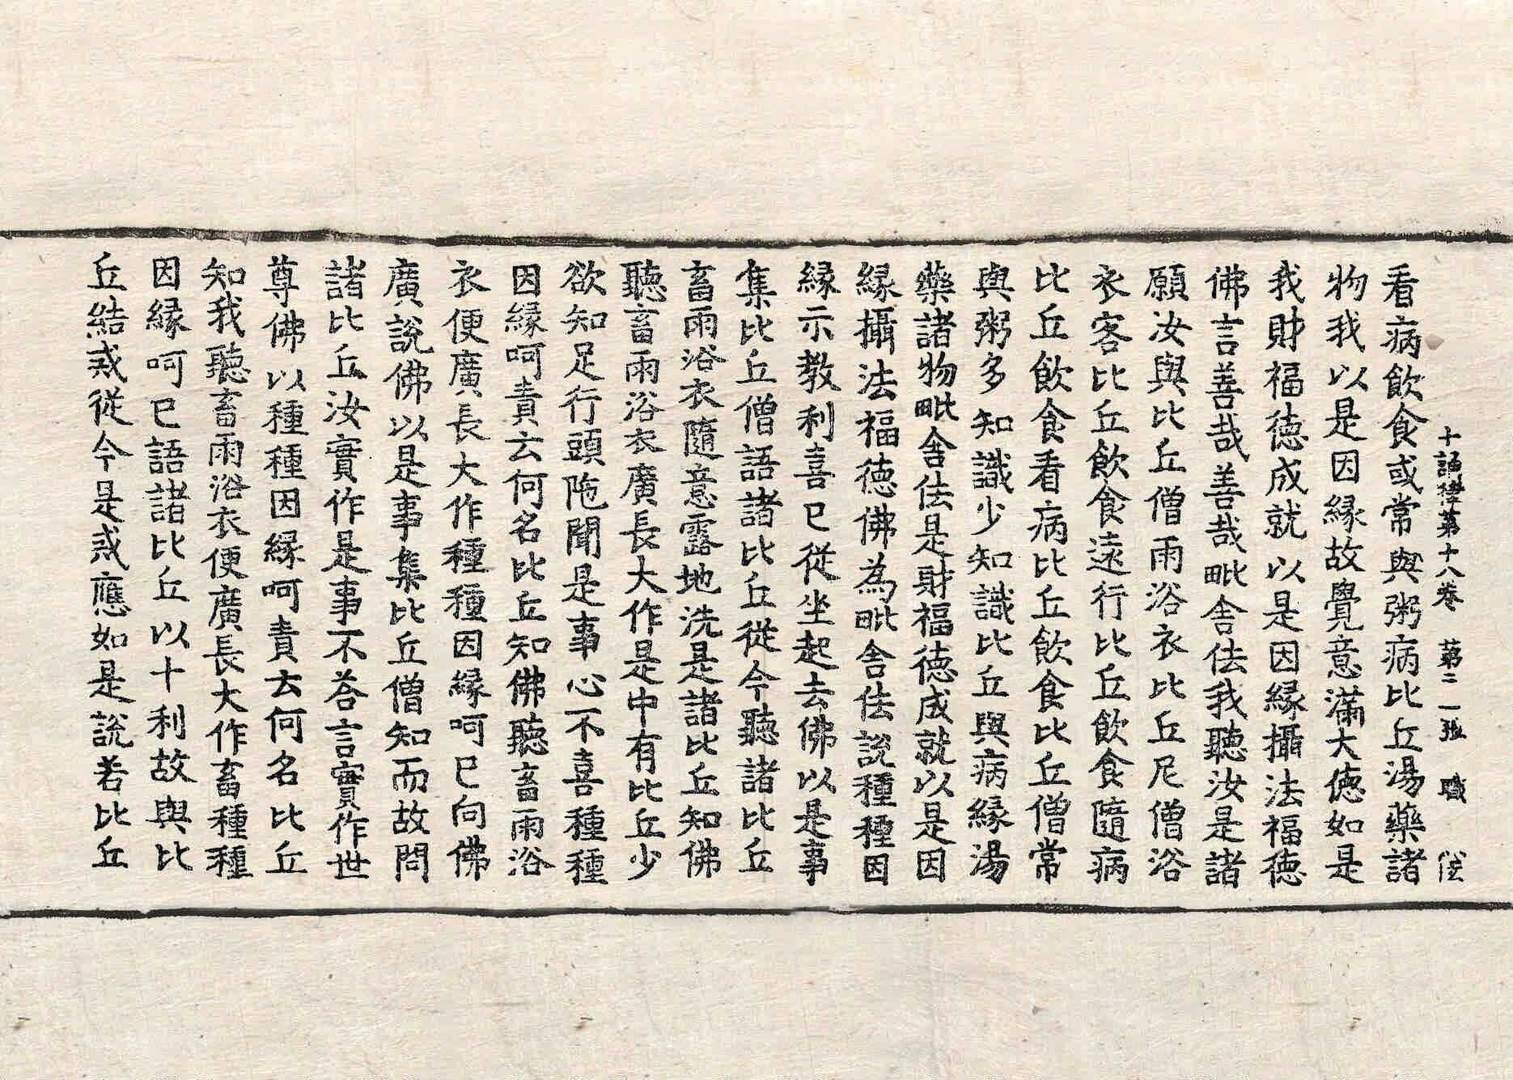 十誦律第十八卷　第二一張　職　㳒
看病飲食或常與粥病比丘湯藥諸
物我以是因縁故覺意滿大德如是
我財福德成就以是因縁攝法福德
佛言善哉善哉毗舍佉我聽汝是諸
願汝與比丘僧雨浴衣比丘尼僧浴
衣客比丘飲食遠行比丘飲食隨病
比丘飲食看病比丘飲食比丘僧常
與粥多知識少知識比丘與病緣湯
藥諸物毗舍佉是財福德成就以是因
緣攝法福德佛為毗舍佉說種種因
縁示教利喜已從坐起去佛以是事
集比丘僧語諸比丘從今聽諸比丘
畜雨浴衣隨意露地洗是諸比丘知佛
聽畜雨浴衣廣長大作是中有比丘少
欲知足行頭陁聞是事心不喜種種
因緣呵責云何名比丘知佛聽畜雨浴
衣便廣長大作種種因緣呵已向佛
廣說佛以是事集比丘僧知而故問
諸比丘汝實作是事不荅言實作世
尊佛以種種因緣呵責云何名比丘
知我聽畜雨浴衣便廣長大作畜種種
因緣呵已語諸比丘以十利故與比
丘結戒從今是戒應如是說若比丘